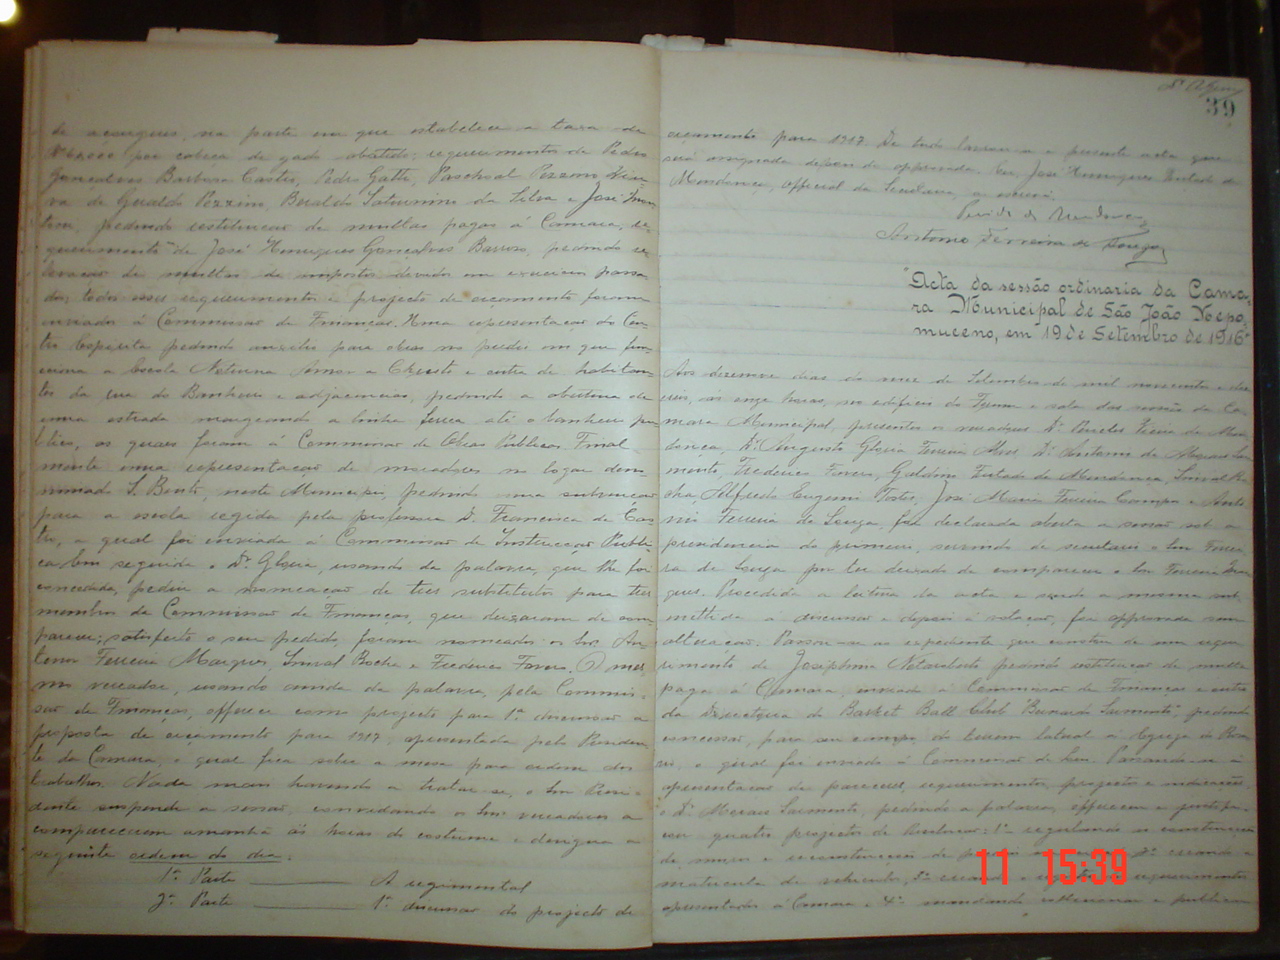 de açougues, na parte em que estabelece a taxa de
por cabeça de gado abatido; requerimentos de Pedro
Gonçalves Barbosa Castro, Pedro Gatto, Paschoal Pezzini, Viu-
va de Geraldo Pezzini, Beraldo Saturnino da Silva e José
pedindo restituição de multas pagas á Camara, re-
querimento de José Henriques Gonçalves Barroso, pedindo re-
levação de multas de impostos devidos em exercicio passa-
do; todos esses requerimentos e projecto de orçamento foram
enviados á Commissão de Finanças. Uma representação do Cen-
tro Espirita pedindo auxilio para obras no predio em que func-
ciona a Escola Nocturna Amor a Christo e outra de habitan-
tes da rua do Banheiro e adjacencias, pedindo a abertura de
uma estrada margeando a linha ferrea até o banheiro pu-
blico, as quaes foram á Commissão de Obras Publicas. Final-
mente uma representação de moradores no logar deno-
minado S. Bento, neste Municipio, pedindo uma subvenção
para a escola regida pela professora D. Francisca de Cas-
tro, a qual foi enviada á Commissão de Instrucção Publi-
ca. Em seguida o Dr. Gloria, usando da palavra, que lhe foi
concedida, pediu a nomeação de tres substitutos para tres
membros da Commissão de Finanças, que deixaram de com-
parecer; satisfeito o seu pedido, foram nomeados os Snrs. An-
tenor Ferreira Marques, Sinval Rocha e Frederico Favero. O mes-
mo vereador, usando ainda da palavra, pela Commis-
são de Finanças, offerece como projecto para 1ª discussão a
proposta de orçamento para 1917, apresentada pelo Presiden-
te da Camara, o qual fica sobre a mesa para ordem dos
trabalhos. Nada mais havendo a tratar-se, o Snr Presi-
dente suspende a sessão, convidando os Snrs vereadores a
comparecerem amanhã ás horas do costume e designa a
seguinte ordem do dia:
1ª Parte ——— A regimental
2ª Parte ——— 1ª discussão do projecto de
39
orçamento para 1917. De tudo lavrou-se a presente acta que
será assignada depois de approvada. Eu, José Henriques Furtado de
Mendonça, official da Secretaria, a escrevi.
Antonio Ferreira de Souza
Acta da sessão ordinaria da Cama-
ra Municipal de São João Nepo-
muceno, em 19 de Setembro de 1916
Aos dezenove dias do mez de Setembro de mil novecentos e dez-
eseis, ás onze horas, no edificio do Forum e sala das sessões da Ca-
mara Municipal, presentes os vereadores Dr. Pericles Vieira de Men-
donça, Dr. Augusto Gloria Ferreira Alves, Dr. Antonio de Moraes Sar-
mento, Frederico Favero, Galdino Furtado de Mendonça, Sinval Ro-
cha, Alfredo Eugenio Tostes, José Maria Ferreira Campos e Anto-
nio Ferreira de Souza, foi declarada aberta a sessão sob a
presidencia do primeiro, servindo de secretario o Snr Ferrei-
ra de Souza por ter deixado de comparecer o Snr Ferreira Mar-
ques. Procedida a leitura da acta e sendo a mesma sub-
mettida a discussão e depois á votação, foi approvada sem
alteração. Passou-se ao expediente que constou de um reque-
rimento de Josephina Notaroberto pedindo restituição de multa
paga á Camara, enviado á Commissão de Finanças e outro
da Directoria do Basket Ball Club "Bernardo Sarmento", pedindo
concessão, para seu campo, do terreno lateral á Egreja do Rosa-
rio, o qual foi enviado á Commissão de Leis. Passando-se á
apresentação de pareceres, requerimentos, projectos e indicações,
o Dr. Moraes Sarmento, pedindo a palavra, offerece e justifi-
ca quatro projectos de 1º regulando a construcção
de muros e reconstrucção de 2º creando a
matricula de vehiculos, 3º requerimentos
apresentados á Camara e 4º mandando e publicar
11 15:39